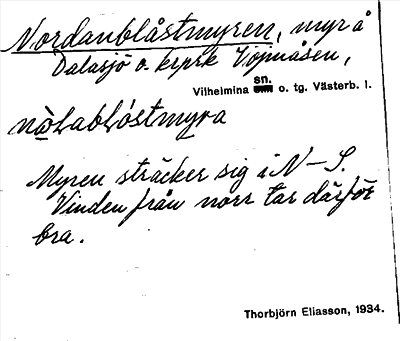 Nordanblåstmyren, myr å
Dalasjö o. krprk Löjnåsen,
Vilhelmina sn. o. tg. Västerb. l.
nòLabLóstmyra
Myren sträcker sig i N–S.
Vinden från norr tar därför
bra.
Thorbjörn Eliasson, 1934.